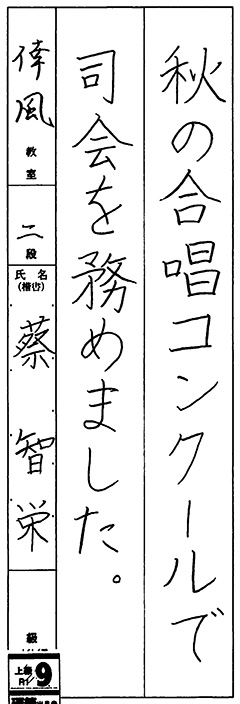 秋の合唱コンクールで
司会を務めました。
倖風 教室
二段
氏名
(楷書)
蔡智栄
級
上級
R1/9